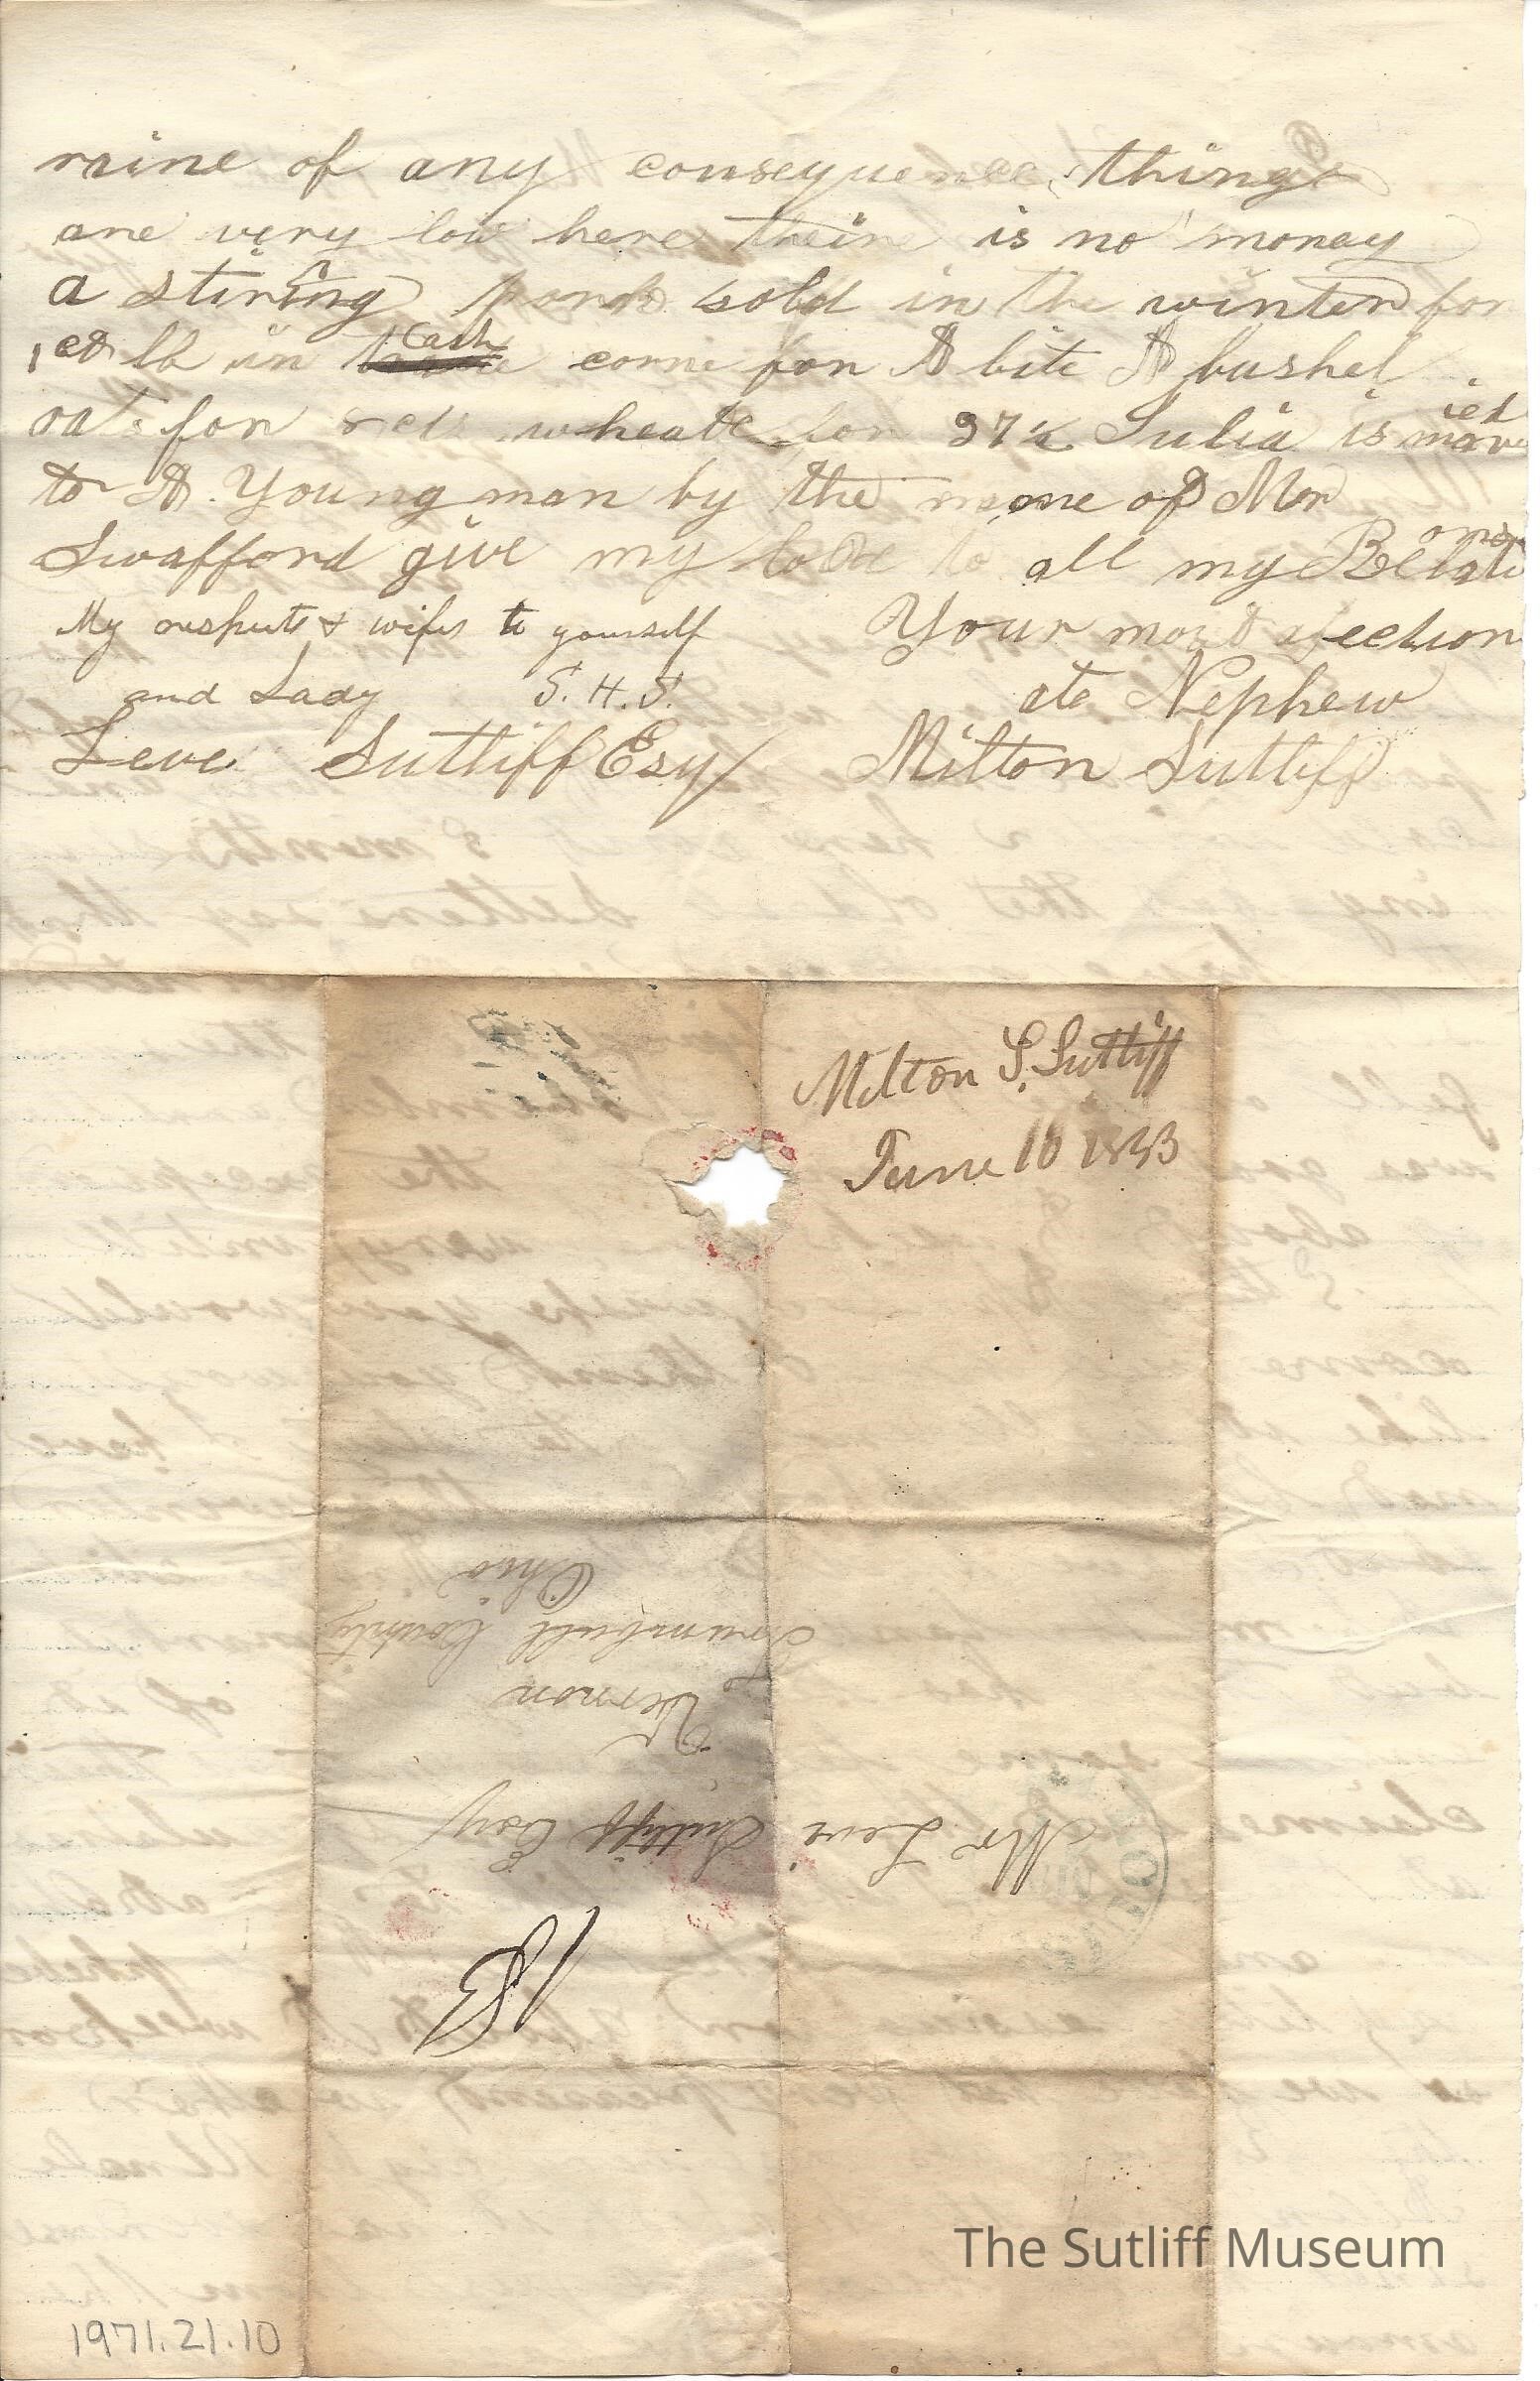 raine of any consequence things
are very low here theire is no money
a stiring pork sold in the winter for
1 ct lb in Cash corne for A bite A bushel
oats for cts wheate for 37½ Julia is maried
to A Young man by the name of Mr
Swafford give my love to all my Relations
My respects & wifes to yourself
and Lady S. H. S.
Your most afection
ate Nephew
Leve Sutliff Esq
Milton Sutliff
Milton S. Sutliff
June 10 1833
Mr Levi Sutliff Esq
Vernon
Trumbull County
Ohio
The Sutliff Museum
1971.21.10